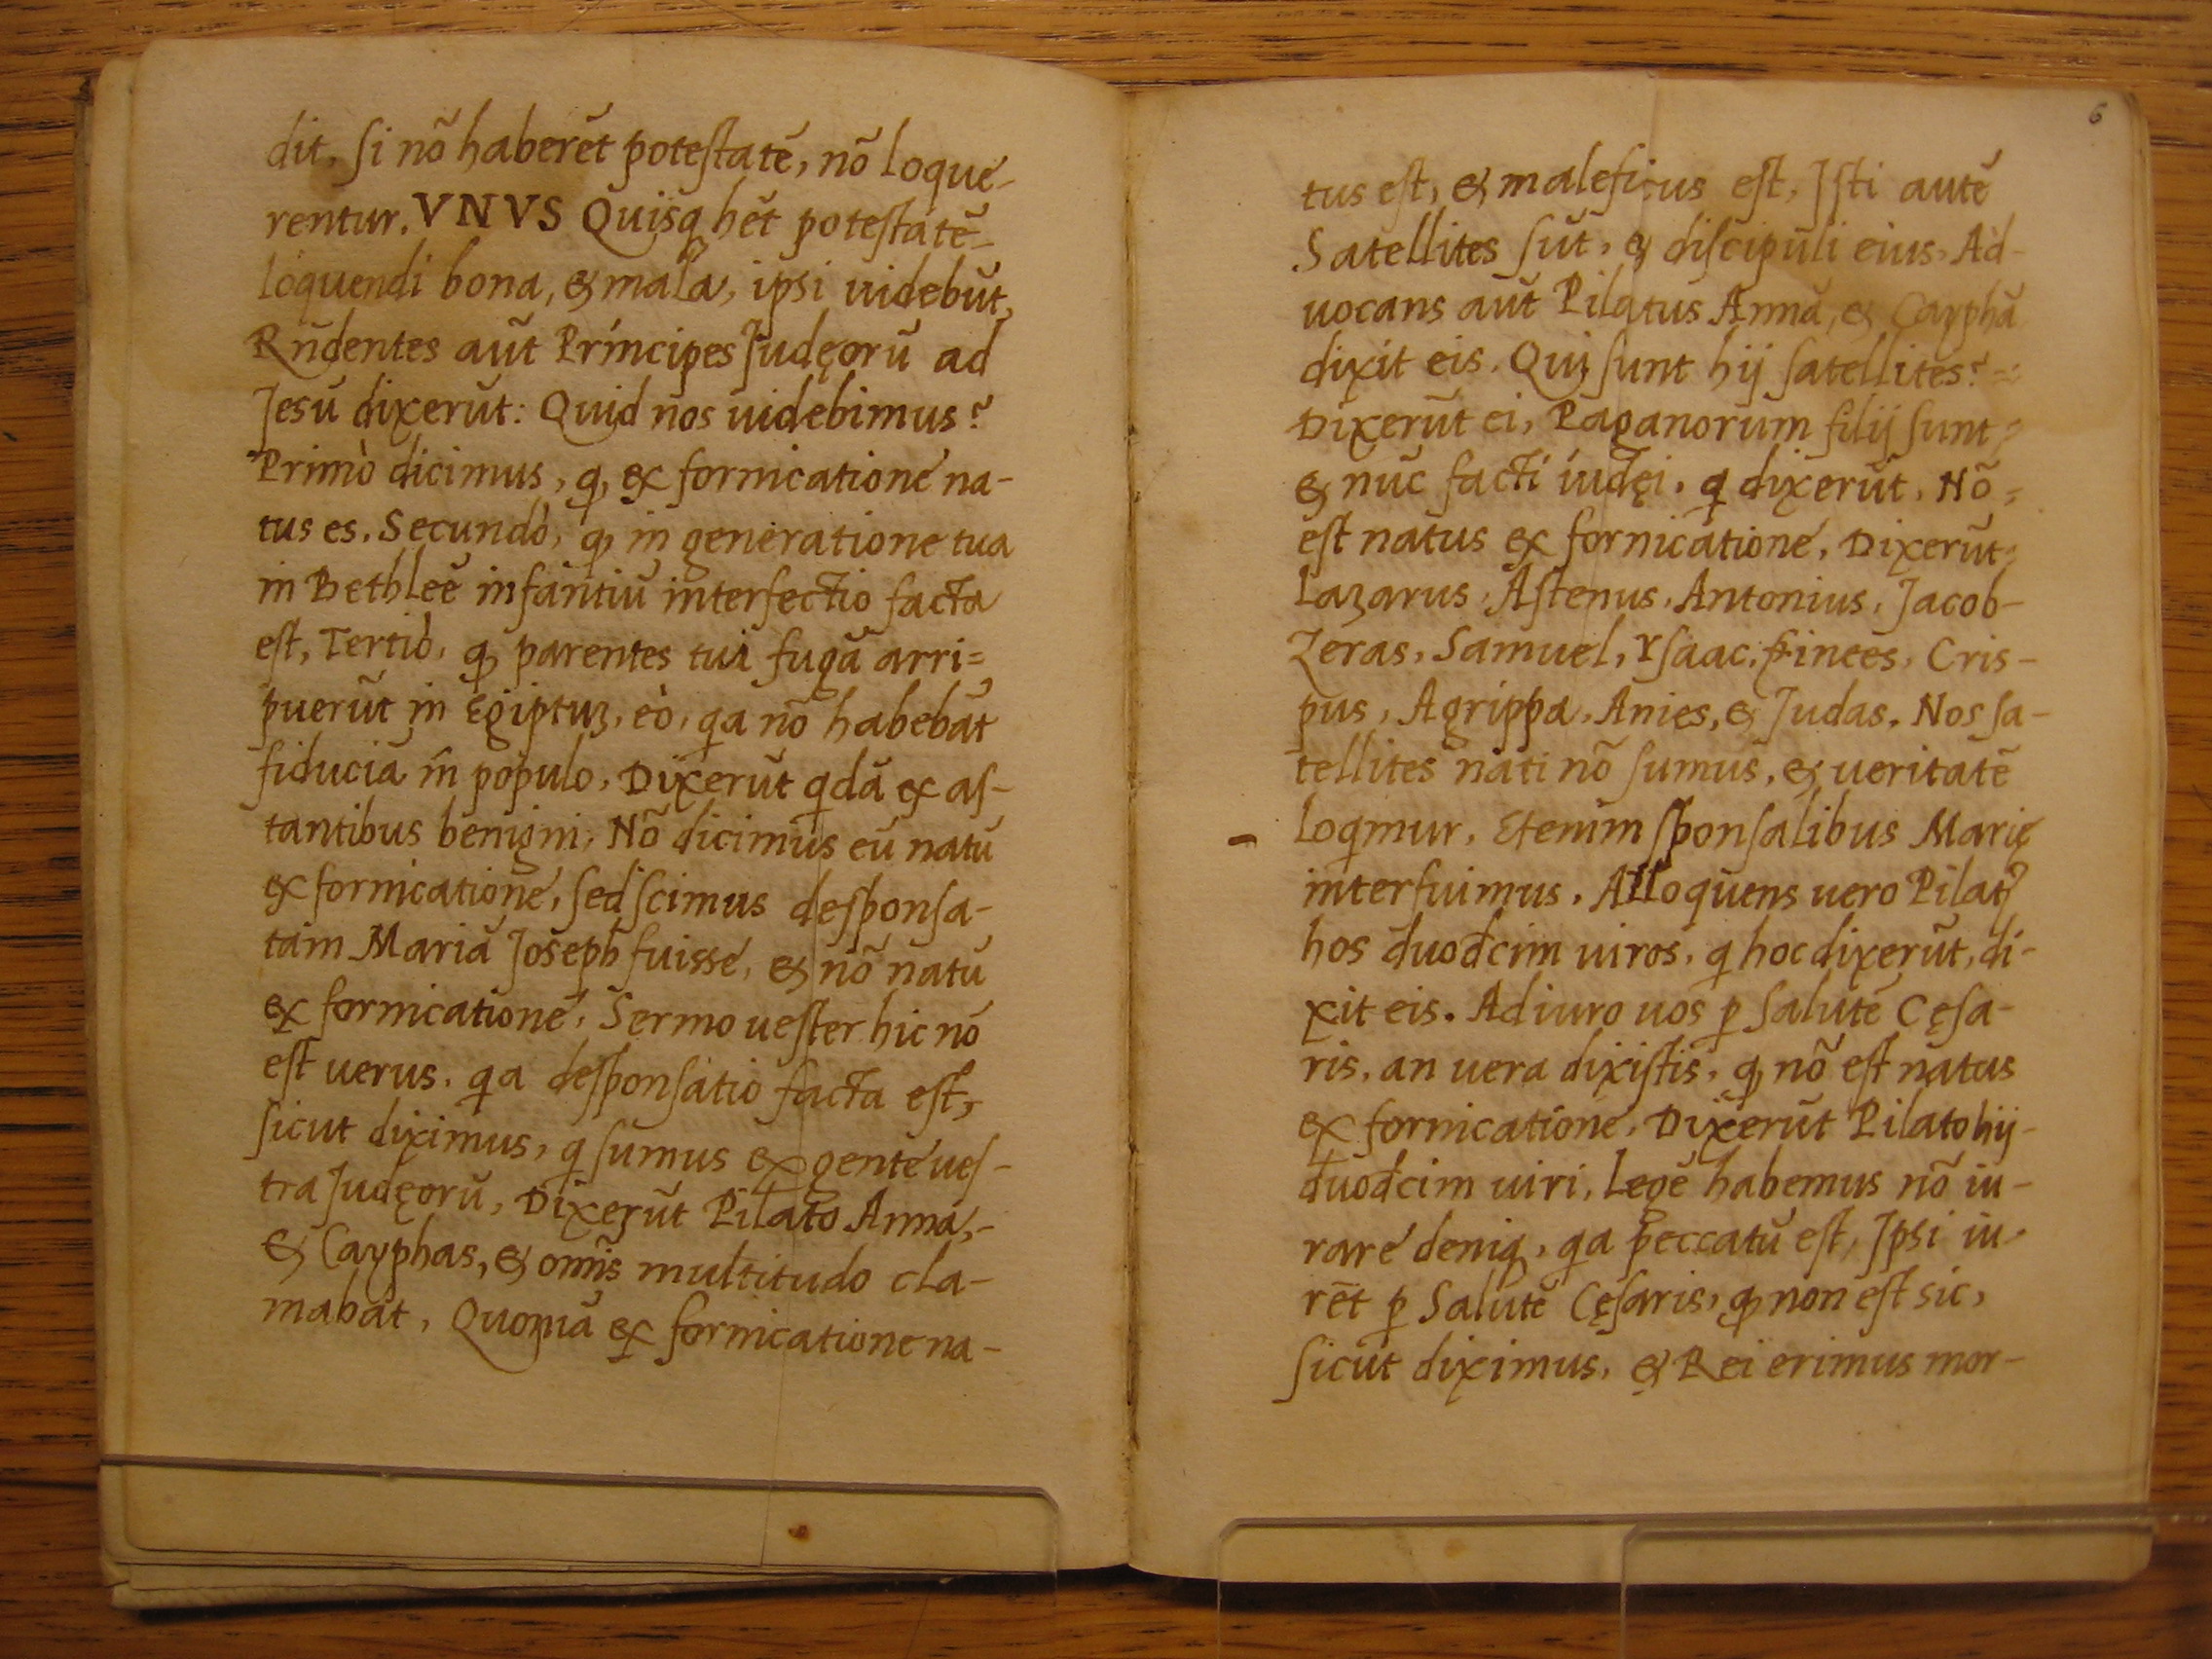 dit, si nõ haberēt potestatē, nõ loque-
rentur. VNVS Quisq hēt potestatē=
loquendi bona, & mala, ipsi uidebūt,
Rñdentes aūt Príncipes Judęorũ ad
Jesũ dixerūt: Quid nos uidebimus?
Primò dicimus, ꝙ, ex fornicatione na-
tus es. Secundò, ꝙ in generatione tua
in Bethleē infantiũ interfectio facta
est, Tertiò, ꝙ parentes tui fugã arri=
puerūt in Egiptuꝫ, eò, qa nõ habebãt
fiduciã in populo, Dixerūt qdã ex as-
tantibus benigni, Nõ dicimus eũ natũ
ex fornicatione, sed scimus desponsa-
tam Mariã Joseph fuisse, & nõ natũ
ex fornicatione, Sermo uester hic nõ
est uerus, qa desponsatio facta est,
sicut diximus, q sumus ex gente ues-
tra Judęorũ, Dixerūt Pilato Anna,-
& Cayphas, & omñis multitudo cla-
mabãt, Quoniã ex fornicatione na-
6
tus est, & maleficus est, Jsti autē
Satellites sūt, & discipuli eius, Ad-
uocans aūt Pilatus Annã, & Cayphã
dixit eis. Qui sunt hij satellites?=
Dixerūt ei, Paganorum filij sunt=
& nūc facti iudęi. q dixerūt, Nõ=
est natus ex fornicatione, Dixerūt=
Lazarus, Astenus, Antonius, Jacob-
Zeras, Samuel, Ysaac, finees, Cris-
pus, Agrippa, Anies, & Judas. Nos sa-
tellites nati nõ sumus, & ueritatē
loqmur, Etenim sponsalibus Marię
interfuimus. Alloquens uero Pilatꝰ
hos duodcim uiros, q hoc dixerūt, di-
xit eis. Adiuro uos ꝑ salutē Cęsa-
ris, an uera dixistis, ꝙ nõ est natus
ex fornicatione, Dixerūt Pilato hij-
duodcim uiri, Legē habemus nõ iu-
rare deniq, qa peccatũ est, Ipsi iu-
rēt ꝑ Salutē Cęsaris, ꝙ non est sic,
sicut diximus, & Rei erimus mor-